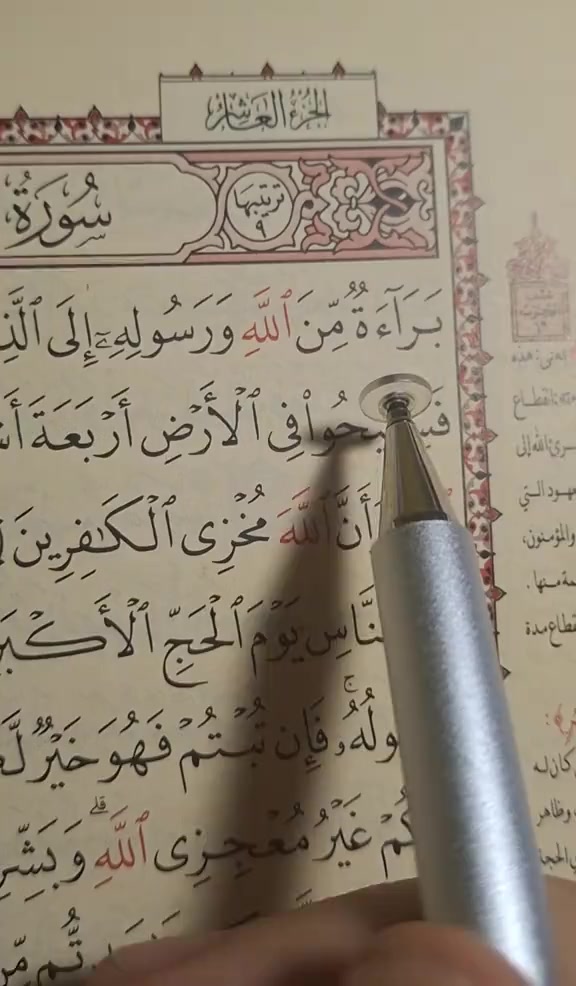 الجزء العاشر
سُورَةُ
ترتيبها
٩
بَرَآءَةٌ مِّنَ ٱللَّهِ وَرَسُولِهِۦٓ إِلَى ٱلَّذِ
فَسِيحُوا۟ فِى ٱلْأَرْضِ أَرْبَعَةَ أَشْ
أَنَّ ٱللَّهَ مُخْزِى ٱلْكَـٰفِرِينَ
نَّاسِ يَوْمَ ٱلْحَجِّ ٱلْأَكْبَرِ
ولُهُۥ ۚ فَإِن تُبْتُمْ فَهُوَ خَيْرٌ لَّ
كُمْ غَيْرُ مُعْجِزِى ٱللَّهِ ۗ وَبَشِّرِ
تُّم مِّنَ
هذه
انقطاع
الله إلى
التي
والمؤمنون،
منها.
مدة
كان له
وظاهر